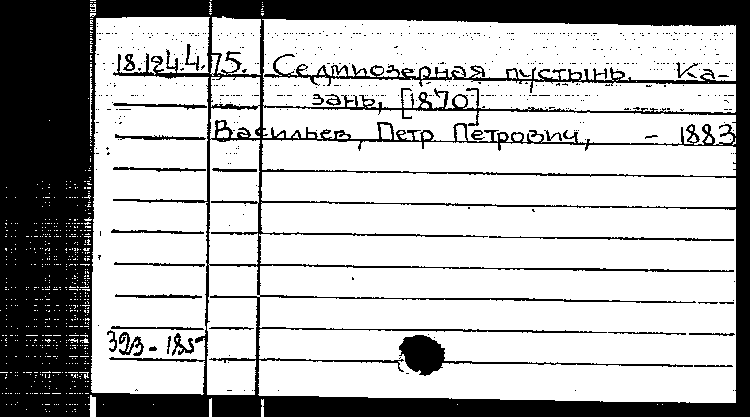 18.124.4.75. Седмиозерная пустынь. Ка-
зань, [1870].
Васильев, Петр Петрович, - 1883
393-185